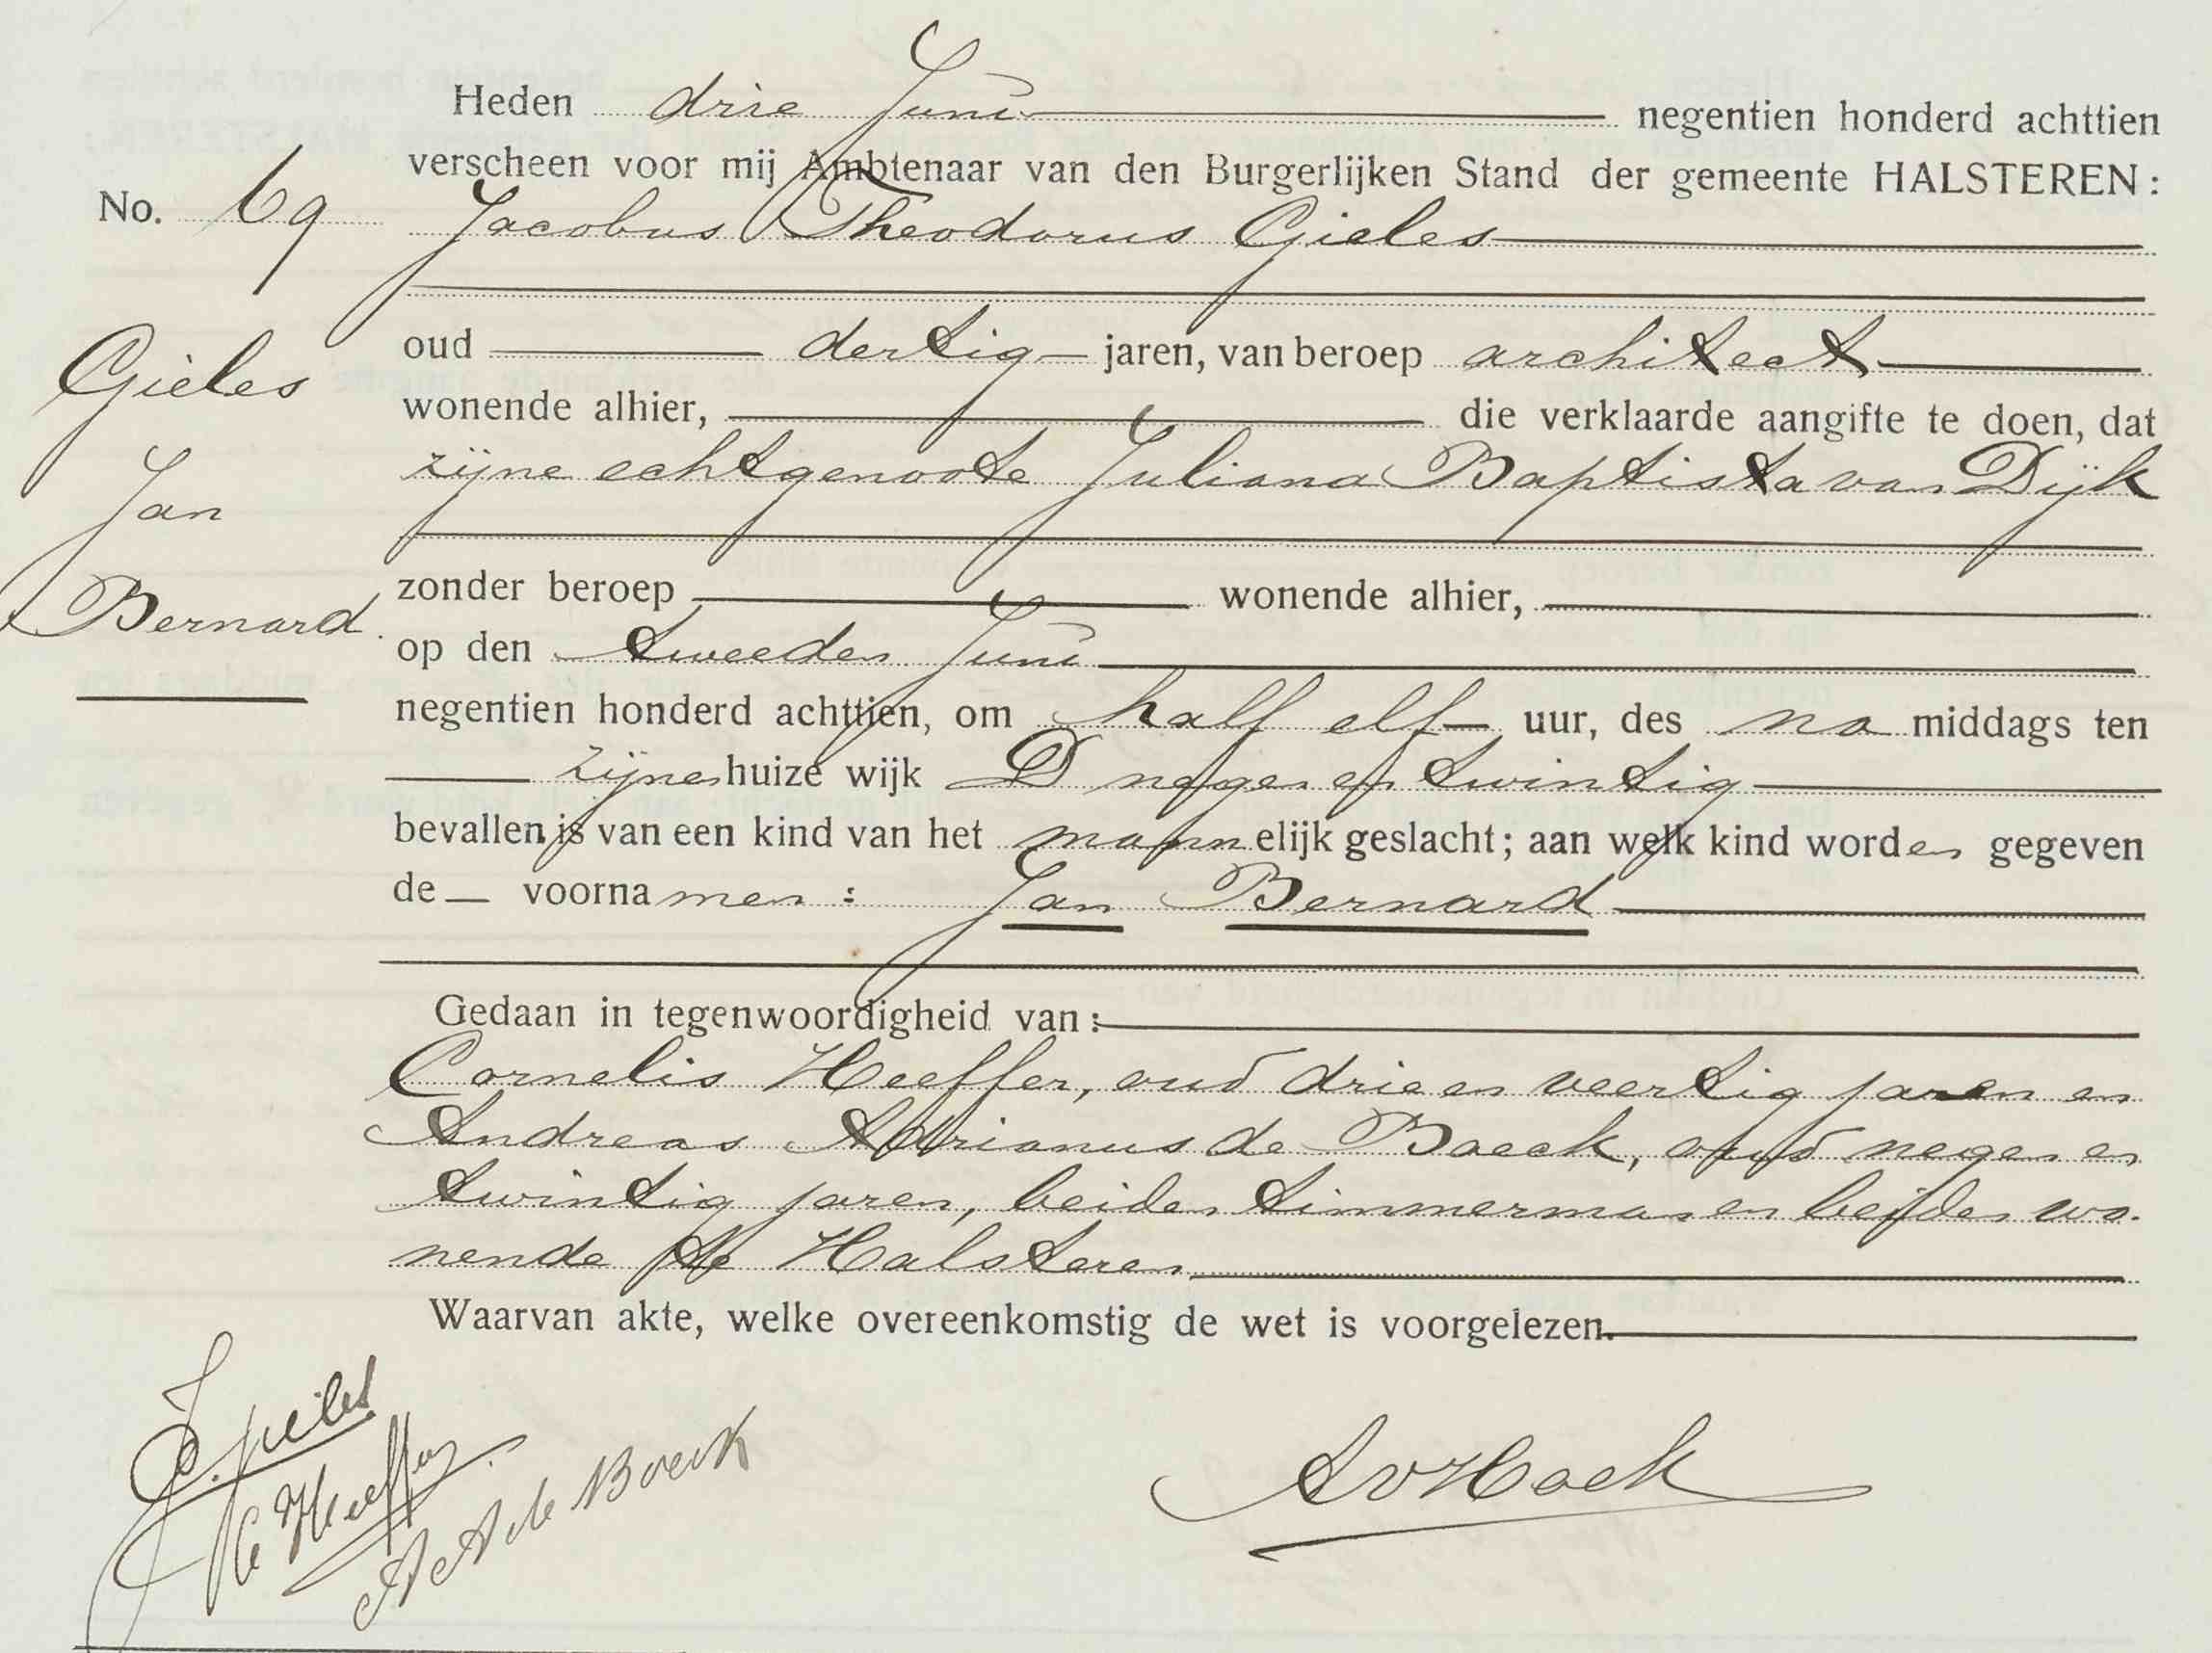 Heden drie Juni negentien honderd achttien
verscheen voor mij Ambtenaar van den Burgerlijken Stand der gemeente HALSTEREN:
No. 69 Jacobus Theodorus Gieles
oud dertig jaren, van beroep architect
Gieles
wonende alhier, die verklaarde aangifte te doen, dat
zijne echtgenoote Juliana Baptista van Dijk
Jan
zonder beroep wonende alhier,
Bernard
op den tweeden Juni
negentien honderd achttien, om half elf uur, des na middags ten
zijnen huize wijk D negen en twintig
bevallen is van een kind van het mannelijk geslacht; aan welk kind worden gegeven
de voornamen: Jan Bernard
Gedaan in tegenwoordigheid van:
Cornelis Heeffer, oud drie en veertig jaren en
Andreas Adrianus de Baeck, oud negen en
twintig jaren, beiden timmerman en beiden wo-
nende te Halsteren
Waarvan akte, welke overeenkomstig de wet is voorgelezen.
J. Gieles
C Heeffer
A A de Boeck